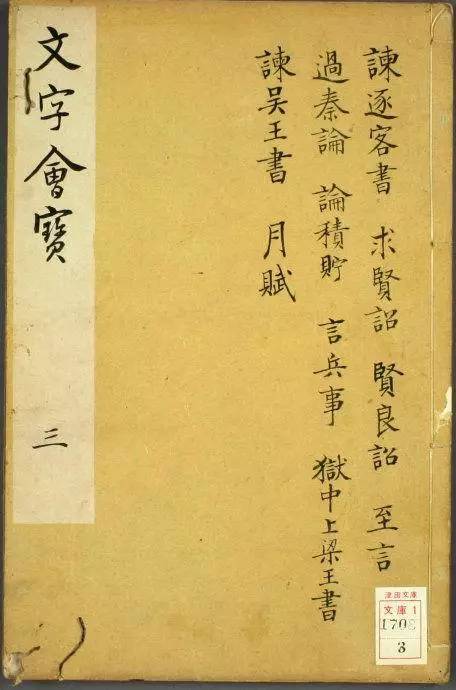 諫逐客書 求賢詔 賢良詔 至言
過秦論 論積貯 言兵事 獄中上梁王書
諫吴王書 月賦
文字會寳 三
津田文庫
文庫1
1703
3